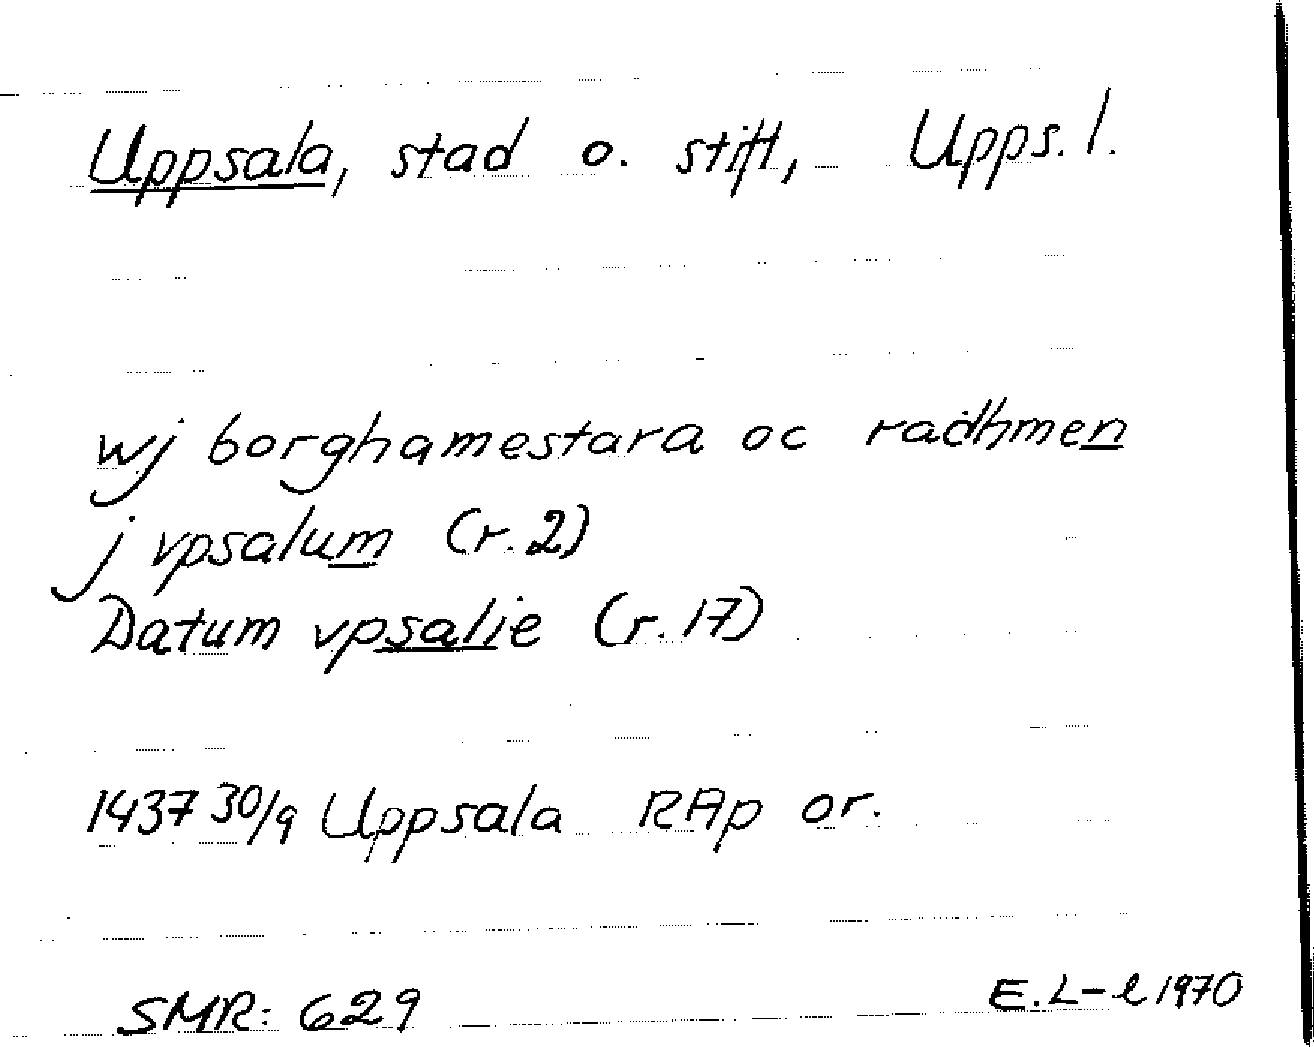 Uppsala, stad o. stift, Upps. l.
wj borghamestara oc radhmen
j vpsalum (r. 2)
Datum vpsalie (r. 17)
1437 30/9 Uppsala RAp or.
SMR: 629
E. L-l 1970